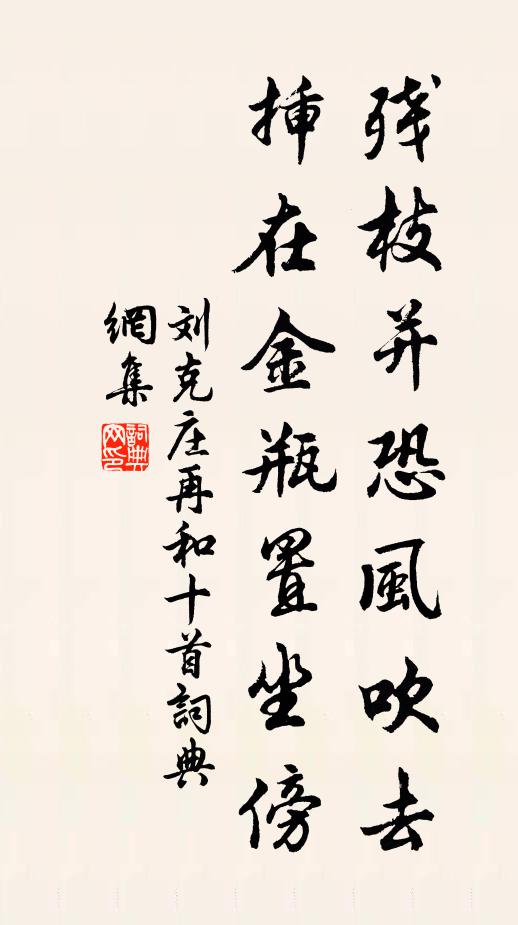 残枝并恐風吹去
挿在金瓶置坐傍
刘克庄再和十首詞典
網集
詞典網印